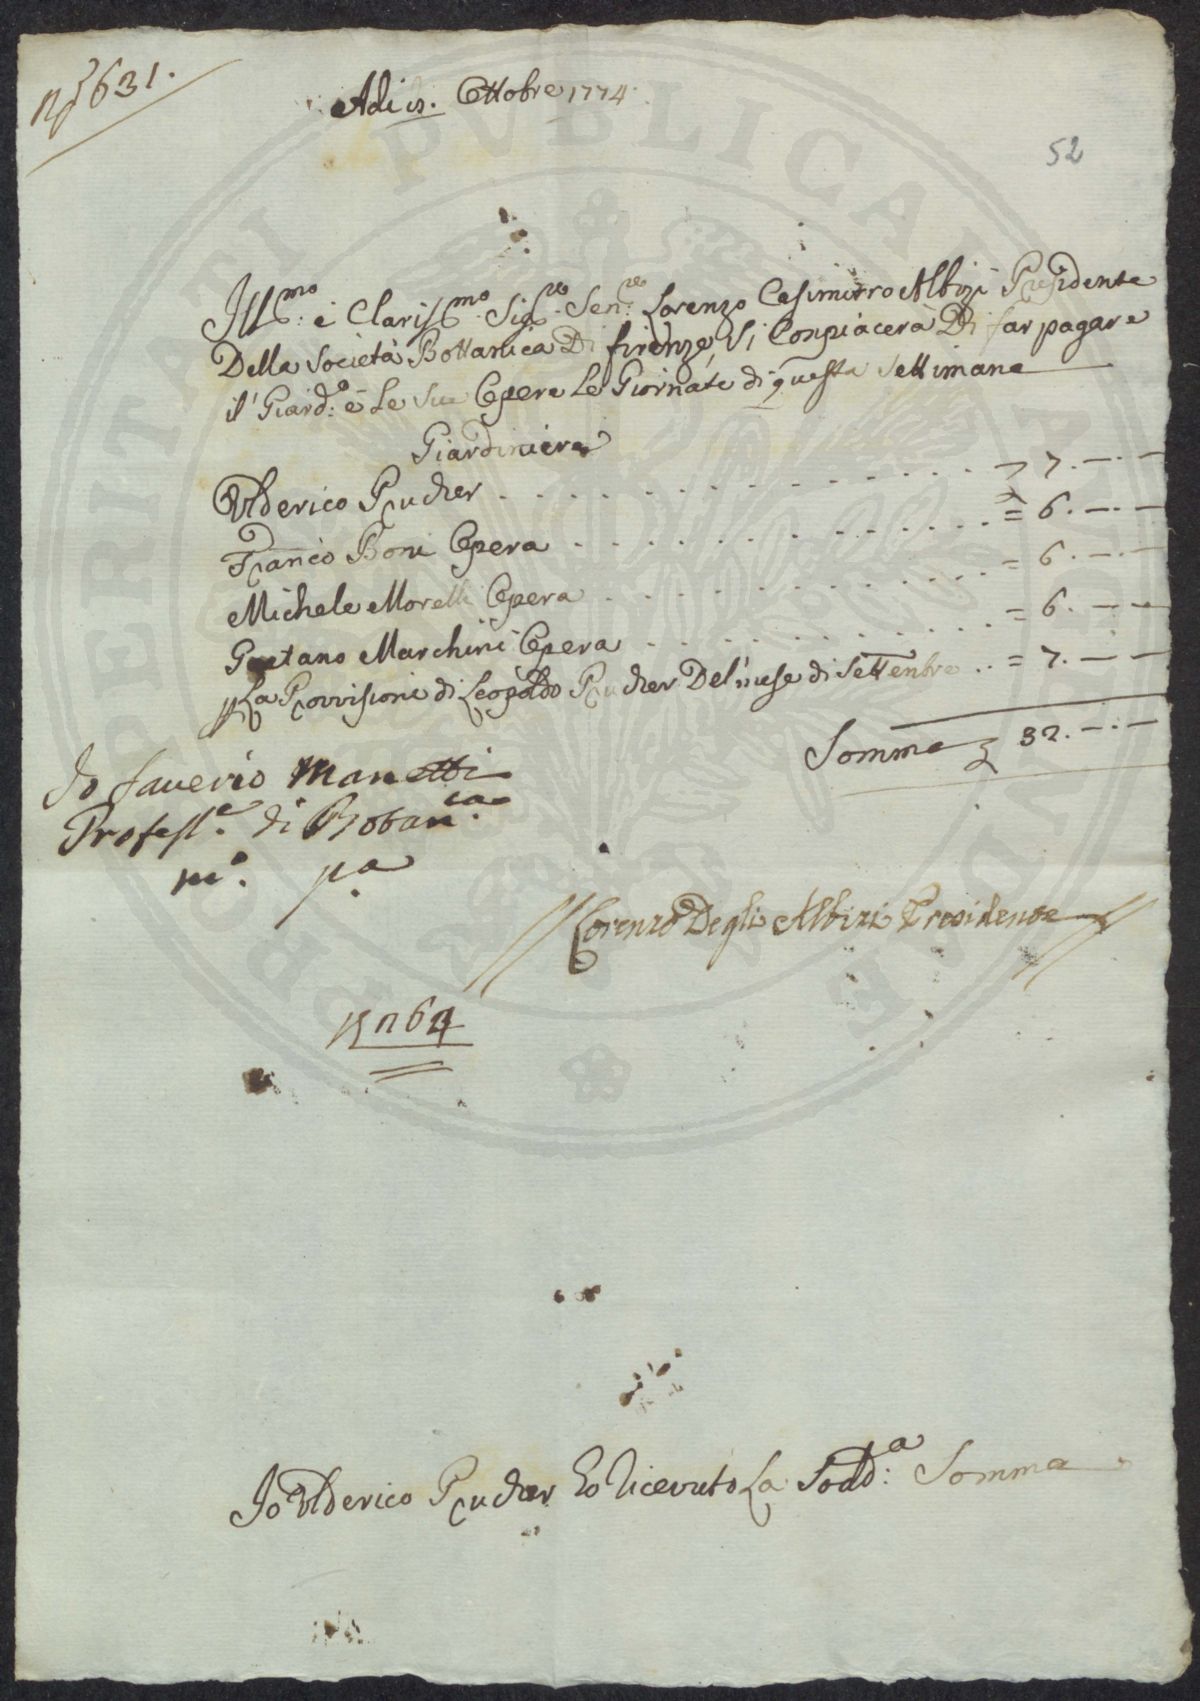 631.
Adi Ottobre 1774.
52
Ill.mo: e Clariss.mo Sig.re Sen.re Lorenzo Casimirro Albizi Presidente
Della Società Bottanica Di firenze, Si Conpiacerà Di far pagare
il' Giard.o: e Le Sue Opere Le Giornate di questa Settimana
Giardiniere
Ulderico Prucher - - - 7. — . —
Franc.o Boni Opera - - - = 6. — . —
Michele Morelli Opera - - - = 6. — . —
Gaetano Marchini Opera - - - = 6. — . —
La Provvisione di Leopoldo Prucher Del' mese di Settenbre - - = 7. — . —
Somma 32. — . —
Io Saverio Manetti
Profess.e di Botan.ca
m.o p.a
Lorenzo Degli Albizi Presidente
n 64
Io Ulderico Prucher Ho Ricevuto La Sodd.a: Somma
PERITATI PVBLICAE